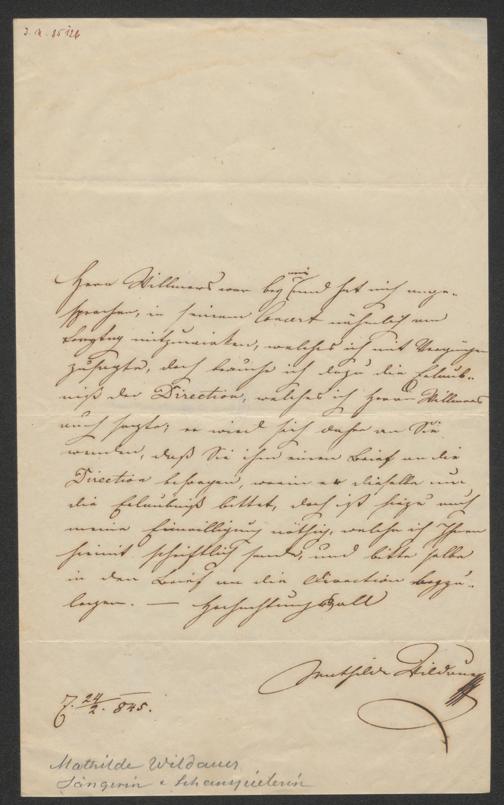 J. N. 85126
Herr Willmers war bey mir und hat mich ange-
sprochen, in seinem Concert nähmlich am
mitzuwirken, welches ich mit Vergnügen
zusagte, doch brauche ich dazu die Erlaub-
niß der Direction, welches ich Herrn Willmers
auch sagte; er wird sich daher an Sie
wenden, daß Sie ihm einen Brief an die
Direction besorgen, worin er dieselbe um
die Erlaubniß bittet, doch ist hiezu auch
meine Einwilligung nöthig, welche ich Ihnen
hiemit schriftlich sende, und bitte selbe
in den Brief an die Direction beyzu-
legen. — Hochachtungsvoll
Mathilde Wildauer
24/2. 845.
Mathilde Wildauer
Sängerin u Schauspielerin